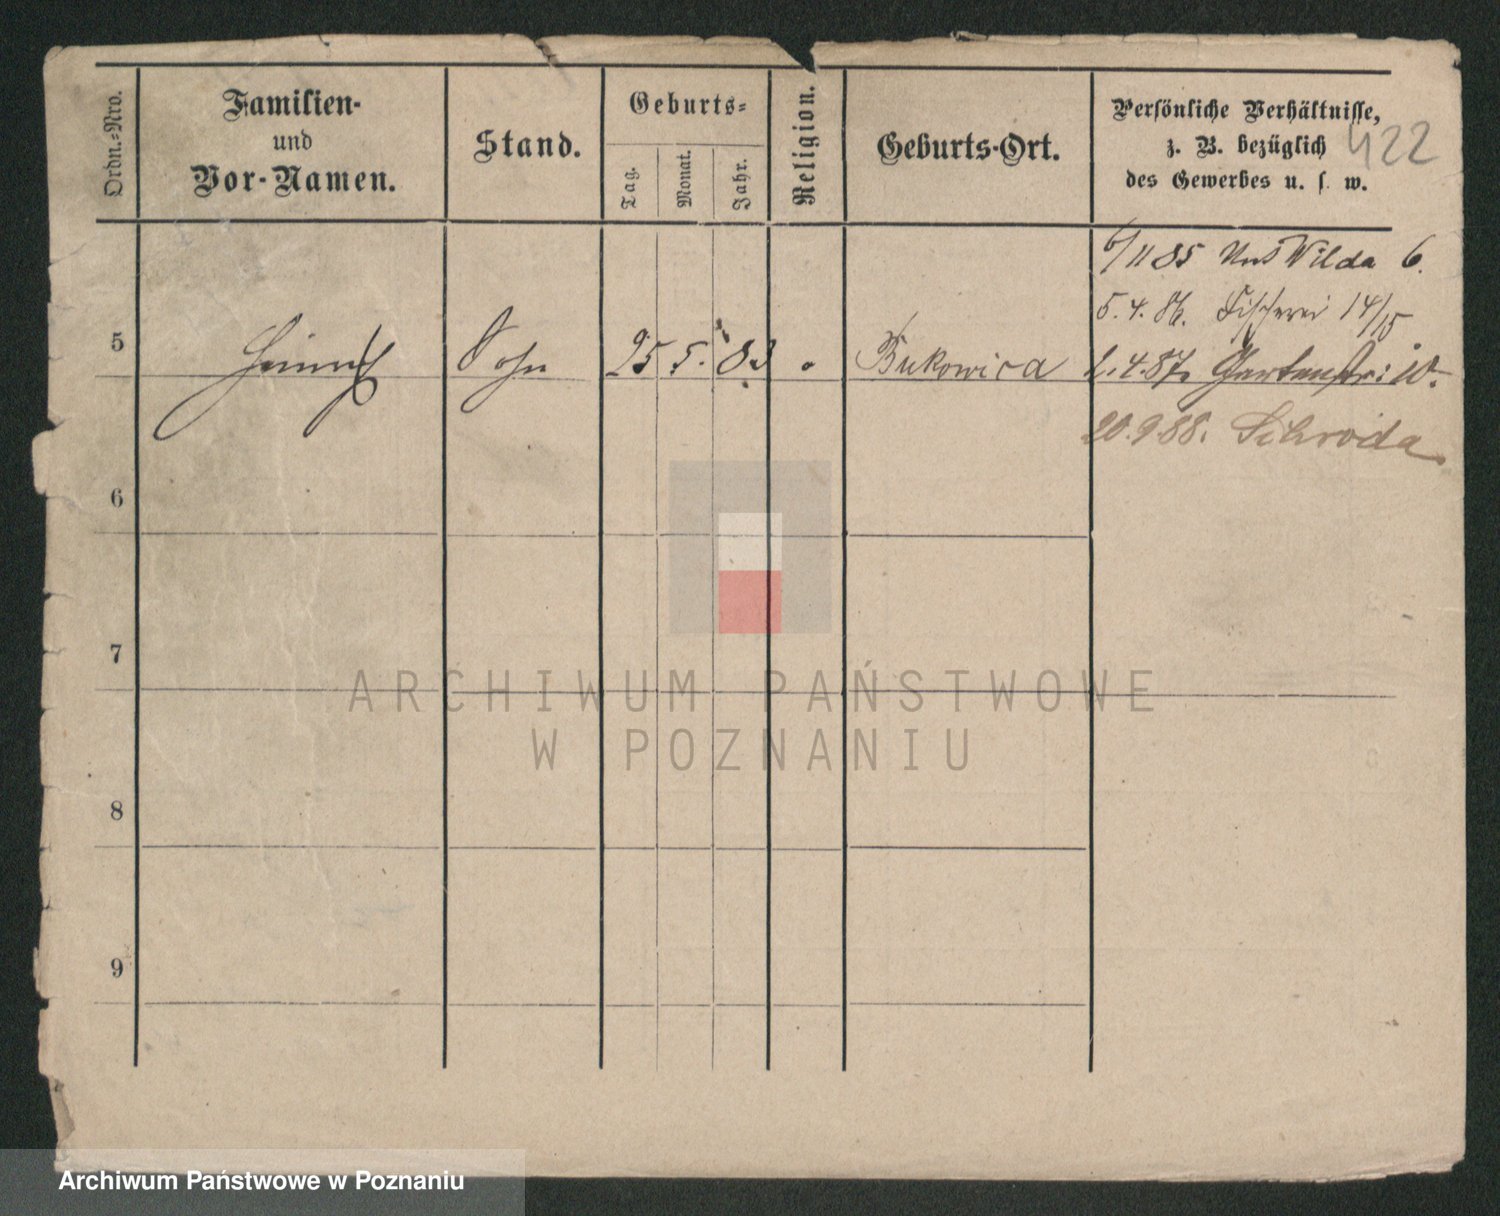 Ordn.-Nro.
Familien-
und
Vor-Namen.
Stand.
Geburts-
Tag.
Monat.
Jahr.
Religion.
Geburts-Ort.
Persönliche Verhältnisse,
z. B. bezüglich
des Gewerbes u. s. w.
422
6/11 85 Wilda 6.
5. 4. 86. Fischerei 14/15
5 Heinrich Sohn 25 5. 83 Bukowica 1. 4. 87. Gartenstr: 10.
20. 9 88. Schroda
6
7
8
9
ARCHIWUM PAŃSTWOWE
W POZNANIU
Archiwum Państwowe w Poznaniu